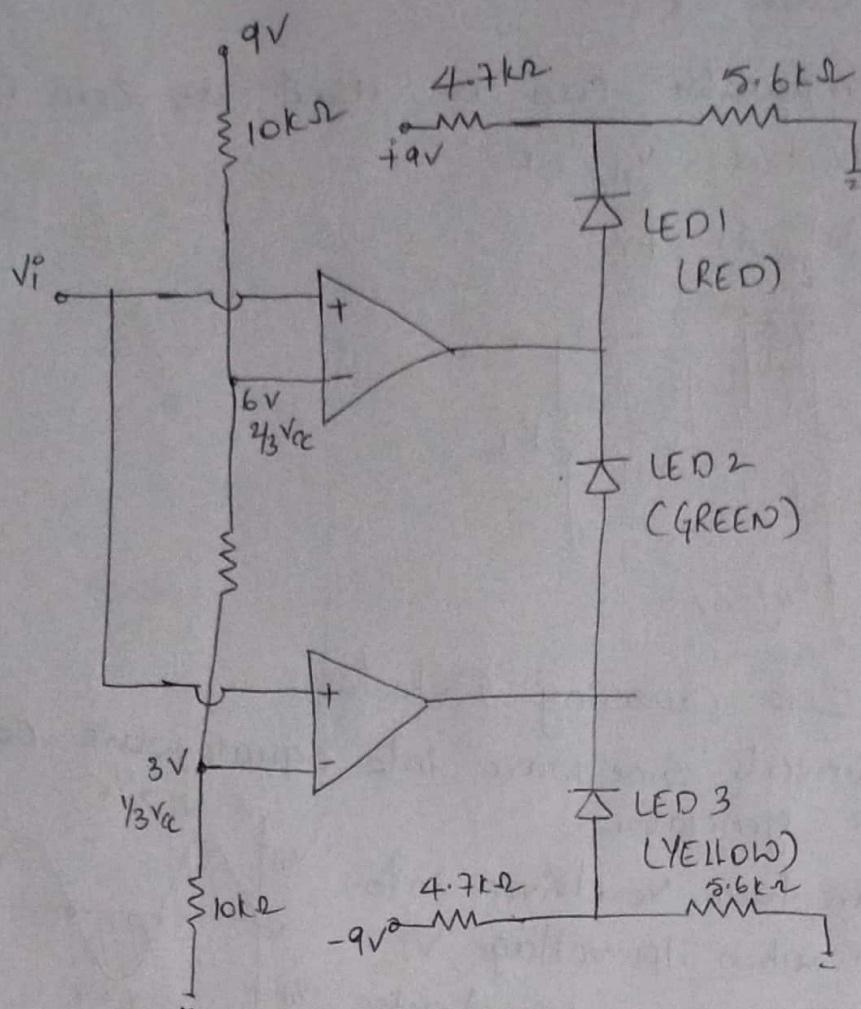 9V
10kΩ
4.7kΩ
5.6kΩ
+9V
LED1
(RED)
Vi
+
-
6V
2/3 Vcc
LED2
(GREEN)
+
-
3V
1/3 Vcc
LED 3
(YELLOW)
4.7kΩ
5.6kΩ
-9V
10kΩ